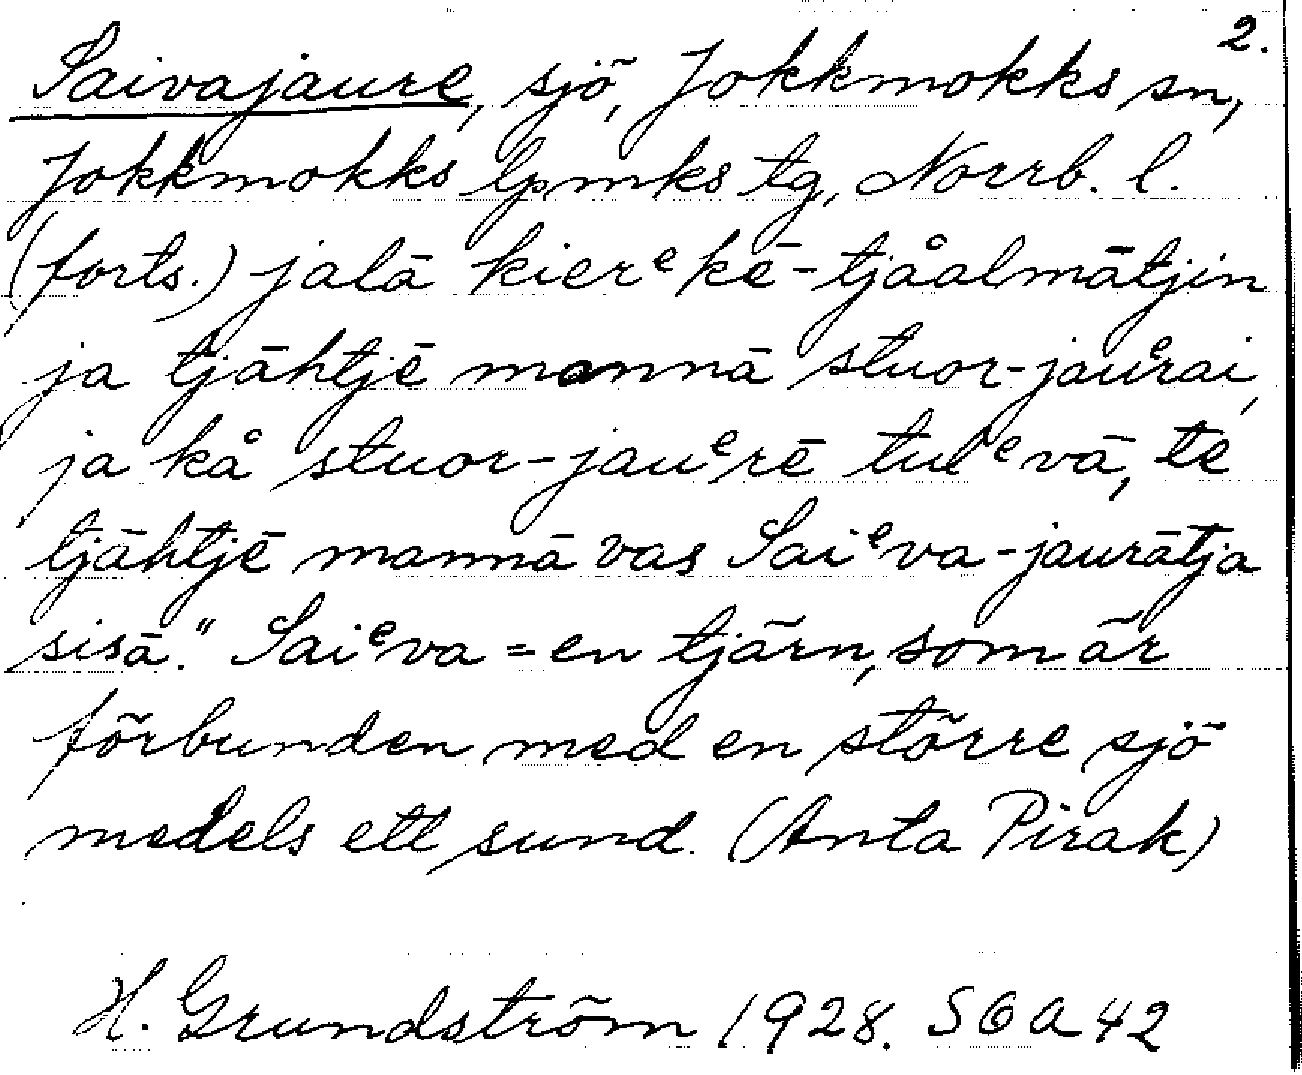 2.
Saivajaure, sjö, Jokkmokks sn,
Jokkmokks lpmks tg, Norrb. l.
(forts.) jalā kierᵉkē-tjåalmātjin
ja tjāhtjē mannā stuor-jauᵉrai,
ja kå stuor-jauᵉrē tulᵉvā, tē
tjāhtjē mannā vas Saiᵉva-jaurātja
sisā." Saiᵉva = en tjärn, som är
förbunden med en större sjö
medels ett sund. (Anta Pirak)
H. Grundström 1928. SOA 42